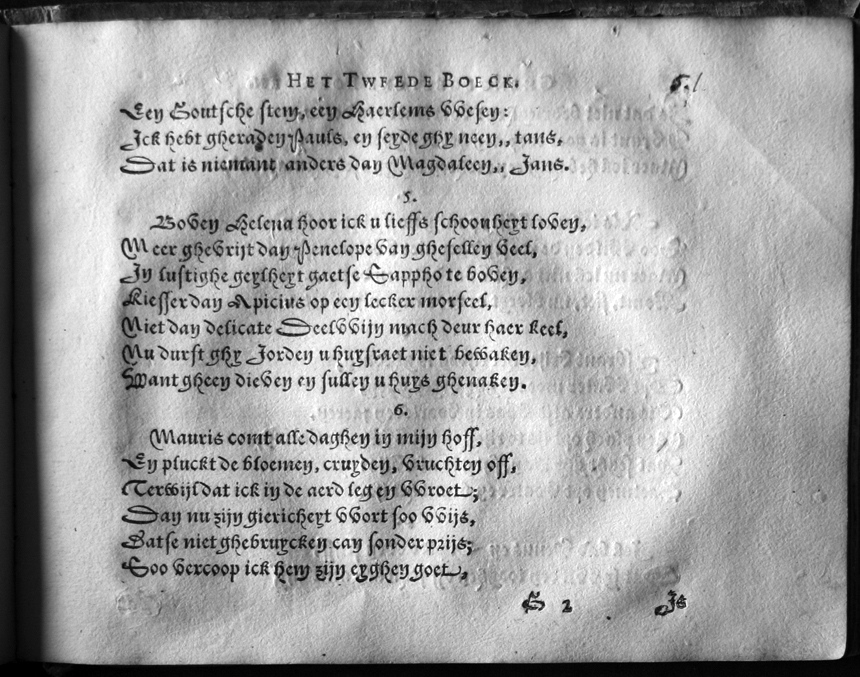 HET TWEEDE BOECK. 51
Een Goutsche stem, een Haerlems wesen:
Ick hebt gheraden Pauls, en seyde ghy neen,, tans,
Dat is niemant anders dan Magdaleen,, Jans.
5.
Boven Helena hoor ick u lieffs schoonheyt loven,
Meer ghevrijt dan Penelope van ghesellen veel,
In lustighe geylheyt gaetse Sappho te boven,
Kiesser dan Apicius op een lecker morseel,
Niet dan delicate Seelwijn mach deur haer keel,
Nu durft ghy Jorden u huysraet niet bewaken,
Want gheen dieven en sullen u huys ghenaken.
6.
Mauris comt alle daghen in mijn hoff,
En pluckt de bloemen, cruyden, vruchten off,
Terwijl dat ick in de aerd leg en wroet;
Dan nu zijn giericheyt wort soo wijs,
Datse niet ghebruycken can sonder prijs;
Soo vercoop ick hem zijn eyghen goet.
G 2 Is